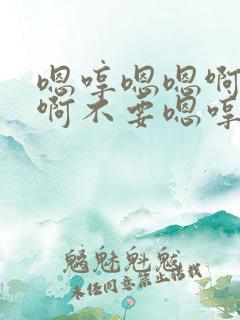 嗯哼嗯嗯啊
啊不要嗯哼
魑魅魁魃
未经同意禁止转载